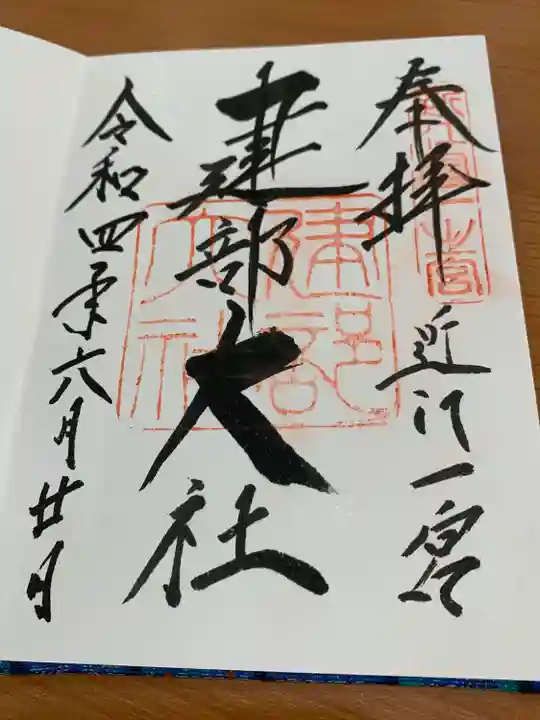 奉拝
近江一宮
建部大社
令和四年六月廿日
近江一之宮
建部大社